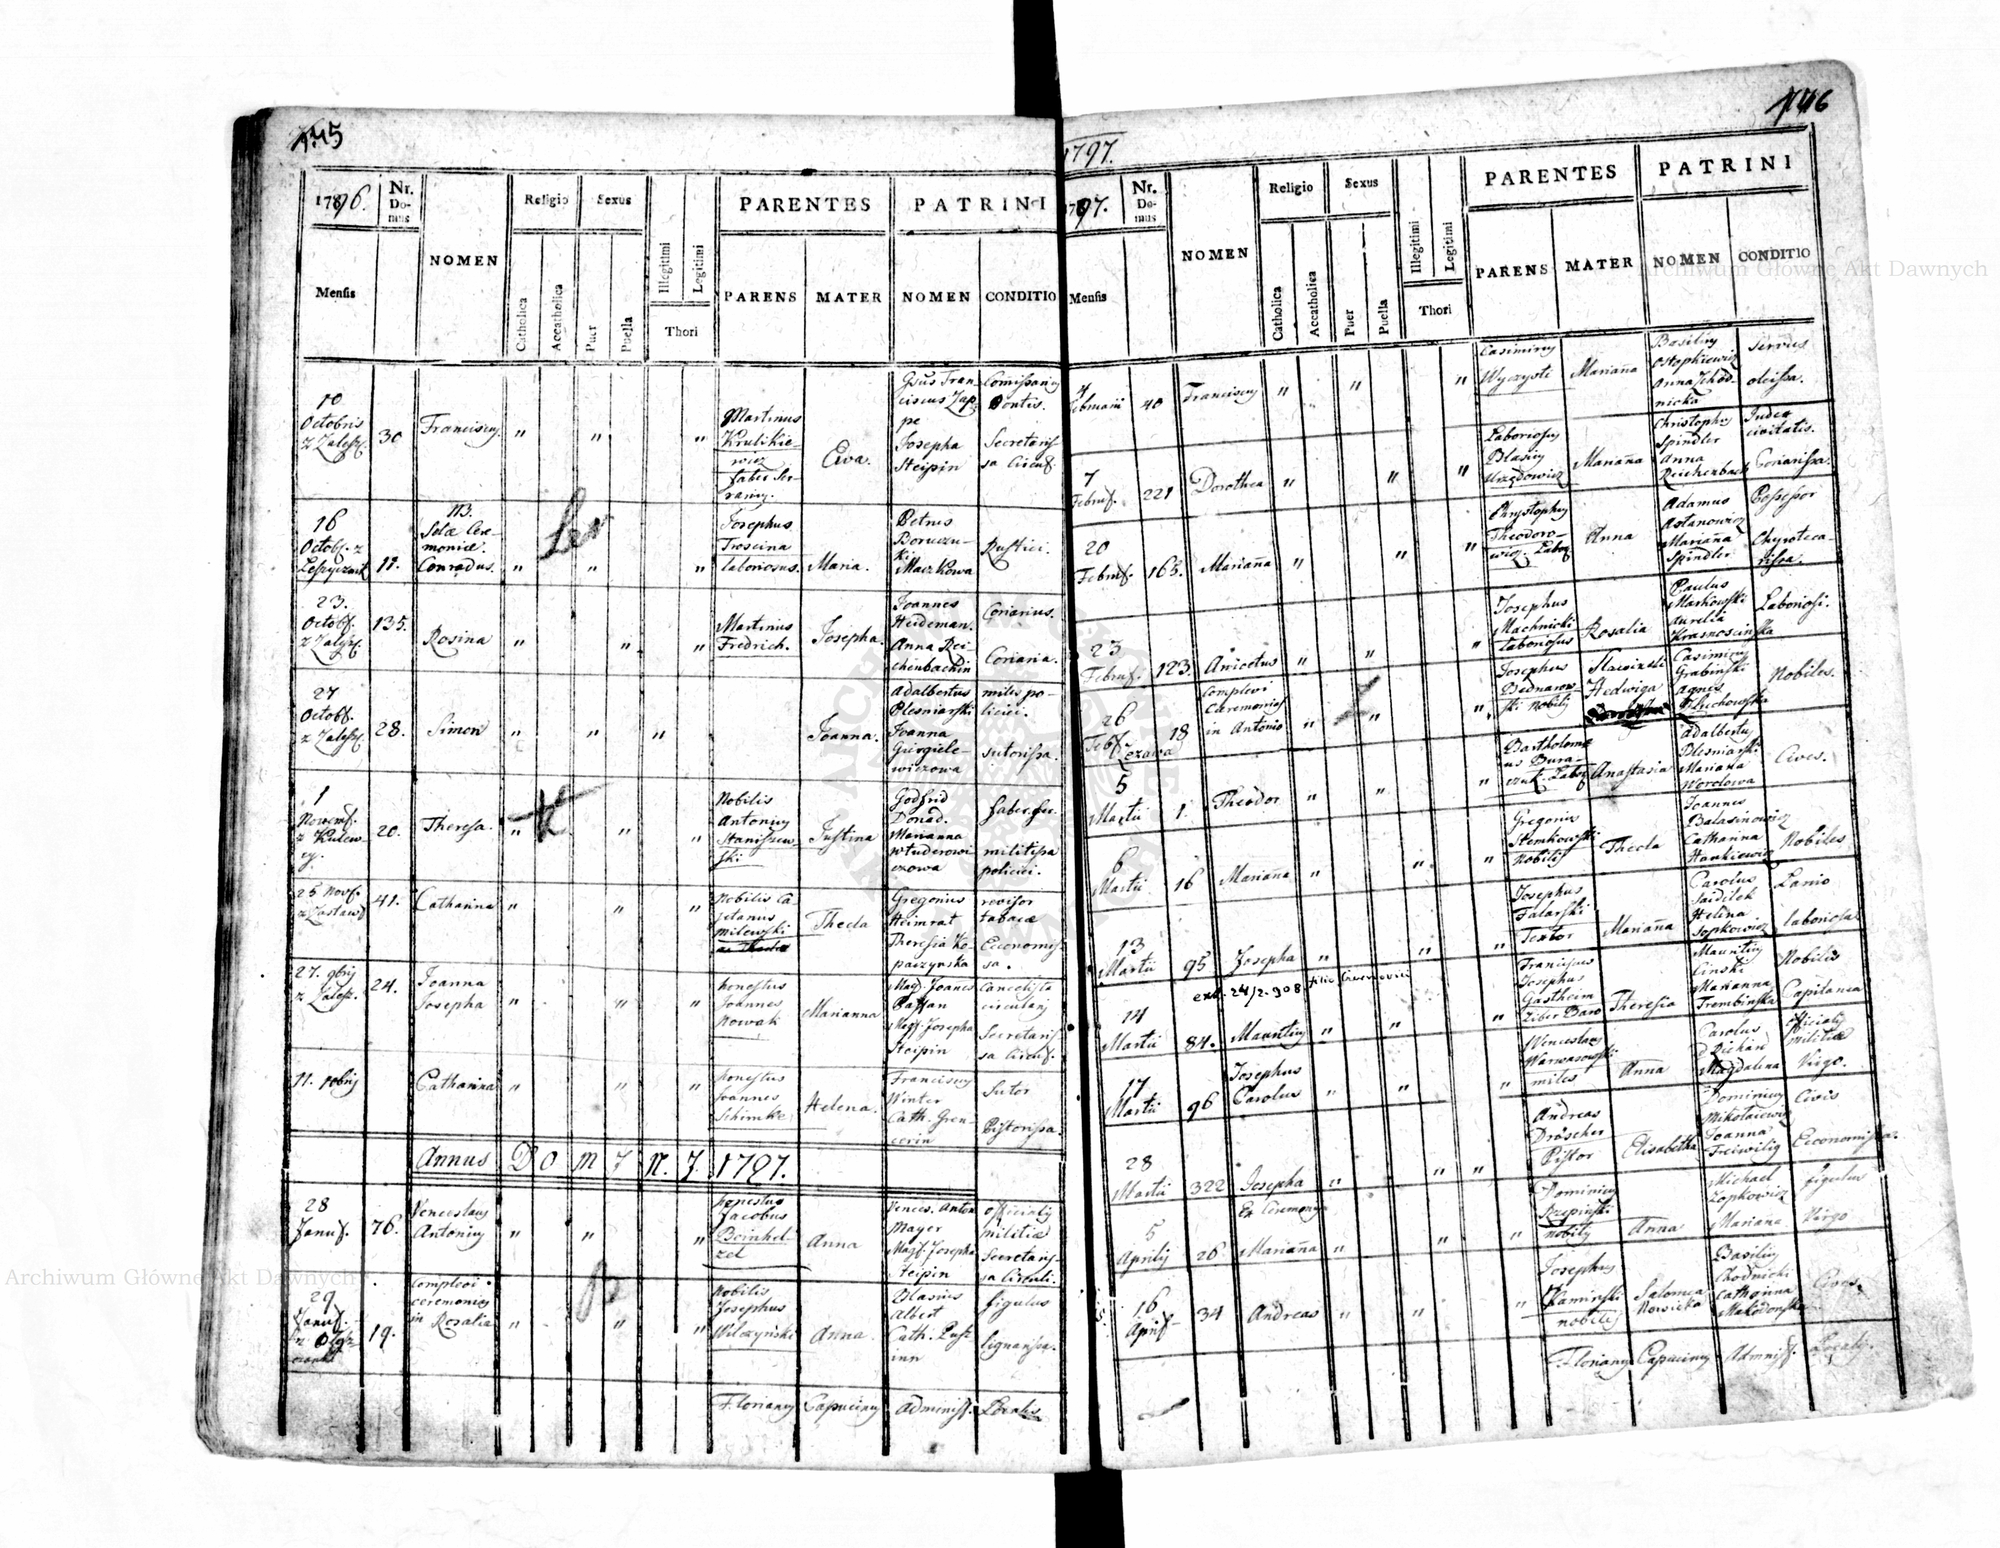 145
1796.
Nr. Domus
NOMEN
Religio
Sexus
PARENTES
PATRINI
Mensis
Catholica
Accatholica
Puer
Puella
Illegitimi
Legitimi
Thori
PARENS
MATER
NOMEN
CONDITIO
10
Octobris
30
Franciscus
"
"
"
Martinus
Krulikie-
wicz
faber
Ewa.
Franciscus
Josepha
Steipin
Comissarius
Pontis.
Secretaris
sa Circul.
16
Octobr. z
11.
Solæ Cere-
moniæ.
Conradus.
"
"
"
Josephus
Troscina
laboriosus.
Maria.
Petrus
Boruczu-
Maczkowa
Rustici.
23.
Octobr.
135.
Rosina
"
"
"
Martinus
Fredrich.
Josepha.
Joannes
Heideman.
Anna Rei-
chenbachin
Coriarius.
Coriaria.
27
Octobr.
28.
Simon
"
"
"
Joanna.
Adalbertus
Plesniarski
Joanna
Giergiele-
wiczowa
miles po-
liciei.
sutorissa.
1
Novemb.
20.
Theresa.
"
"
"
Nobilis
Antonius
Staniszew-
ski
Justina
Godfrid
Donad.
Marianna
militissa
policiei.
26 Novb.
41.
Catharina
"
"
"
Nobilis Ca-
jetanus
Milewski
Thecla
Gregorius
Heimrat
Theresia Ko-
paczynska
revisor
tabacæ
Economis-
sa.
27. 9bris
24.
Joanna
Josepha
"
"
"
honestus
Joannes
Nowak
Marianna
Magf. Joanes
Magf. Josepha
Steipin
Cancelista
circularis
Secretaris
sa Circul.
11. Xbris
Catharina
"
"
"
honestus
Joannes
Schimke
Helena.
Franciscus
Winter
Cath. Gren-
Sutor
Pistorissa.
Annus DOMINI. 1797.
28
Janur.
76.
Venceslaus
Antonius
"
"
"
honestus
Jacobus
Beinhel-
zel
Anna
Vences. Anton
Mayer
Magf. Josepha
Steipin
officialis
militiæ
Secretaris-
sa Circuli.
29
Janur.
19.
complevi
ceremonias
in Rosalia
"
"
"
Nobilis
Josephus
Wilczyński
Anna.
Blasius
Albert
Cath.
figulus
lignarissa.
Florianus Capucinus Administ. Localis
146
1797.
1797.
Nr. Domus
NOMEN
Religio
Sexus
PARENTES
PATRINI
Mensis
Catholica
Accatholica
Puer
Puella
Illegitimi
Legitimi
Thori
PARENS
MATER
NOMEN
CONDITIO
4
Februarii
40
Franciscus
"
"
"
Casimirus
Wyczysti
Marianna
Basilius
Ostapkiewicz
Anna Zchod-
nicka
servus
olcissa.
7
Februar.
221
Dorothea
"
"
"
Laboriosus
Blasius
Urzędowicz
Marianna
Christophus
Spindler
Anna
Reichenbach
Judex
civitatis.
Coriarissa.
20
Februar.
163.
Marianna
"
"
"
Chrystophus
Theodoro-
wicz. Labor
Anna
Adamus
Astanowicz
Marianna
Spindler
Possessor
Chyroteca-
rissa.
23
Februar.
123.
Anicetus
"
"
"
Josephus
Machnicki
laboriosus
Rosalia
Paulus
Markowski
Aurelia
Krasnoscinska
Laboriosi.
26
Febr.
18
complevi
Ceremonias
in Antonio
"
"
"
Josephus
Bednarow-
ski Nobilis
Hedwiga
Casimirus
Grabinski
Agnes
Gluchowska
Nobiles.
5
Martii
1.
Theodor
"
"
"
Bartholome
us Bura-
czuk. Labor
Anastasia
Adalbertus
Plesniarski
Marianna
Worolowa
Cives.
6
Martii
16
Marianna
"
"
"
Gregorius
Stemkowski
Nobilis
Thecla
Joannes
Balasinowicz
Catharina
Hankiewicz
Nobiles
13
Martii
95
Josepha
"
"
"
Josephus
Falarski
Textor
Marianna
Carolus
Saidelek
Helena
Sopkowicz
Lanio
laboriosa
ext. 24/2. 908
14
Martii
84.
Mauritius
"
"
"
Franciscus
Josephus
Gastheim
Liber Baro
Theresia
Mauritius
Cinski
Marianna
Trembinska
Nobilis
Capitanea
17
Martii
96
Josephus
Carolus
"
"
"
Wenceslaus
Warwasowski
miles
Anna
Carolus
Magdalena
officialis
militiæ
Virgo.
28
Martii
322
Josepha
"
"
"
Andreas
Dröscher
Pistor
Elisabetha
Dominicus
Mikolaiewicz
Joanna
Freiwilig
Civis
Economissa.
5
Aprilis
26
Ex Ceremonys
Marianna
"
"
"
Dominicus
Rzepinski
nobilis
Anna
Michael
Zopkowicz
Mariana
figulus
Virgo
16
April
34
Andreas
"
"
"
Josephus
Kaminski
nobilis
Salomea
Nowicka
Basilius
Chodnicki
Catharina
Makodonska
Cives
Florianus Capucinus Administ. Localis.
Archiwum Główne Akt Dawnych
Archiwum Główne Akt Dawnych